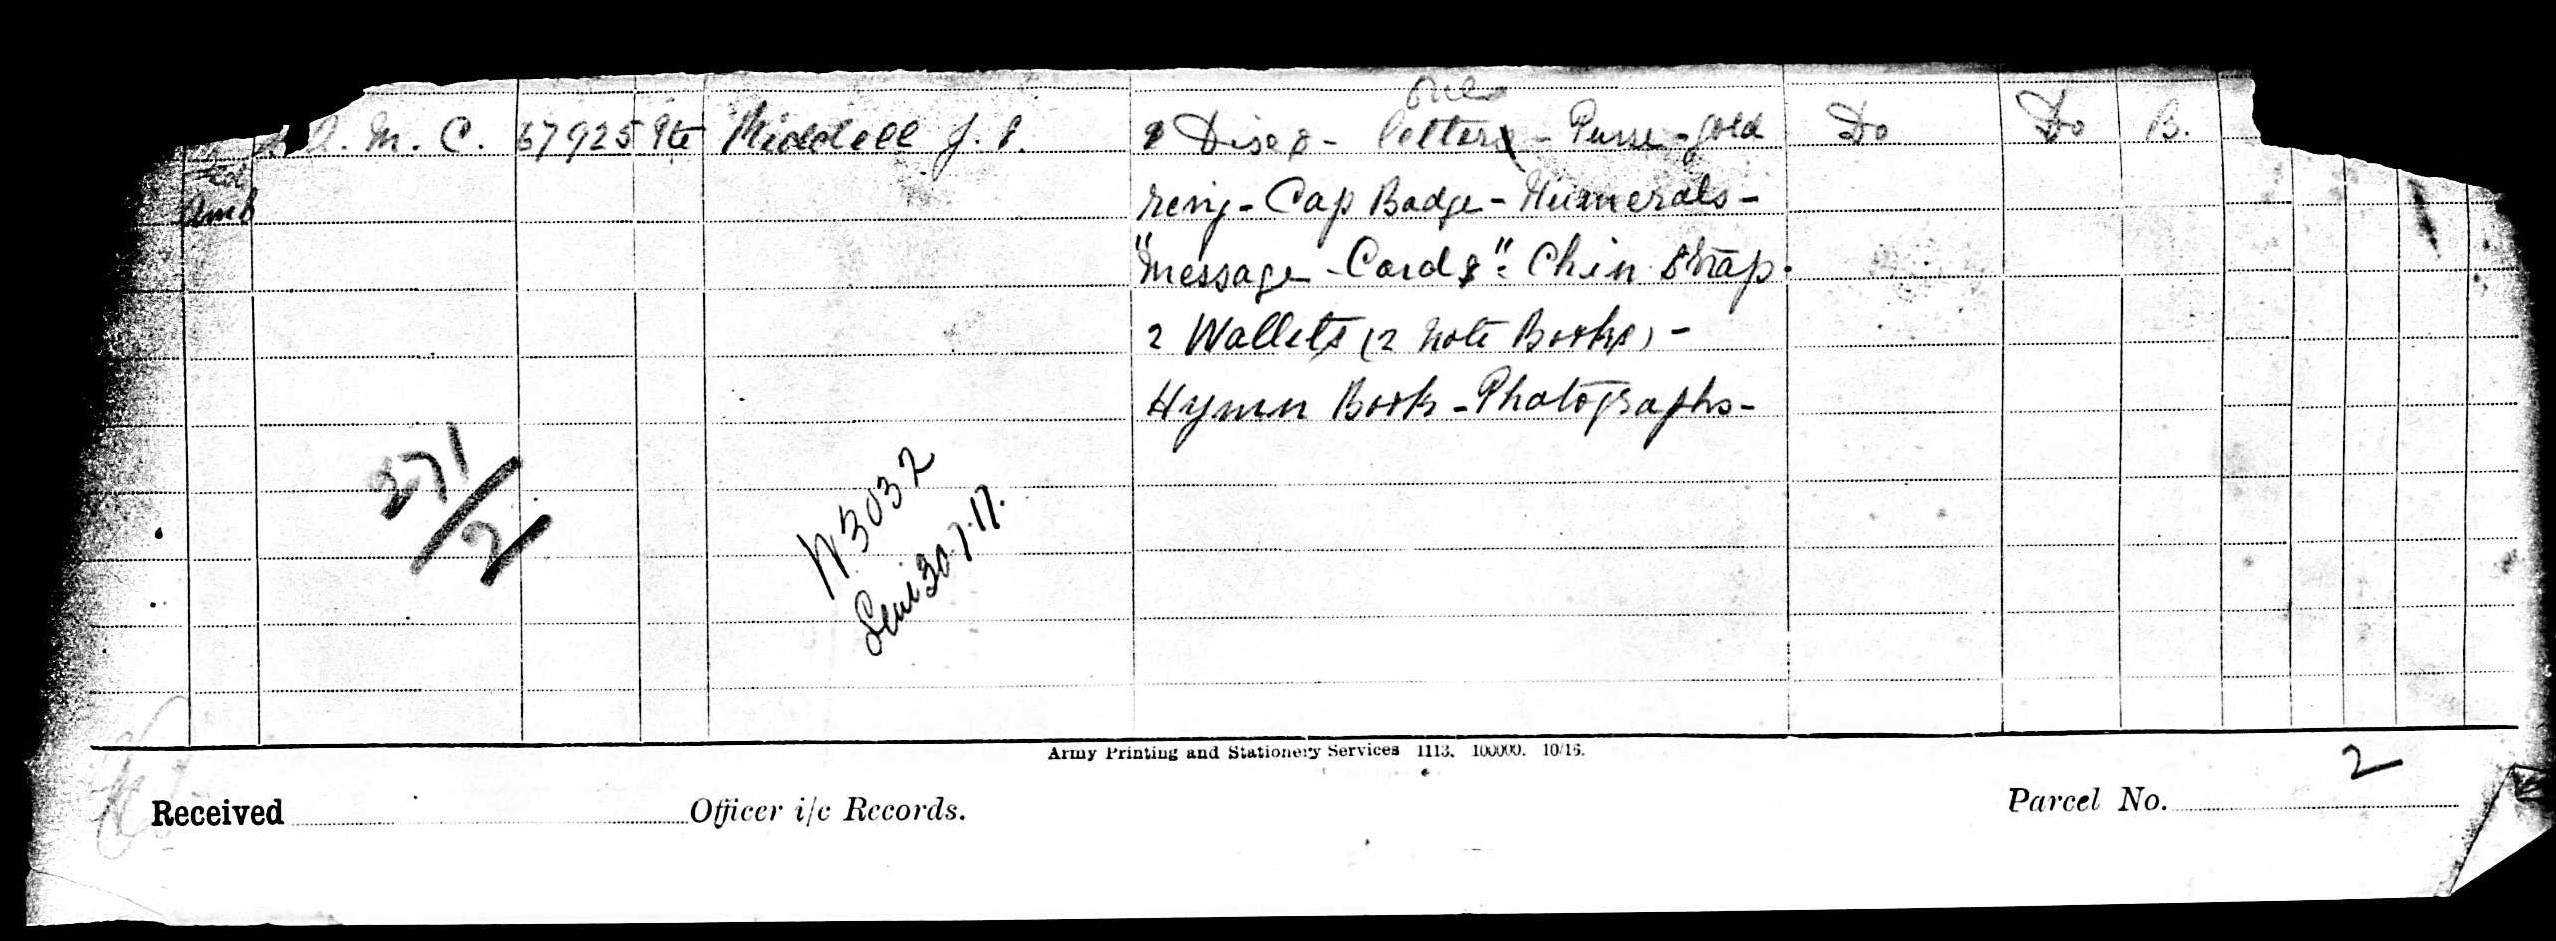 one
R.A.M.C. 67925 Pte Middell J. S. 2 Discs - letters - Purse - gold Do Do B.
Fd
Amb
ring - Cap Badge - Numerals -
"Message - Cards" - Chin Strap.
2 Wallets (2 Note Books) -
Hymn Book - Photographs -
371/2
N.3032
Sent 30.7.17.
Army Printing and Stationery Services 1113. 100000. 10/16.
Received Officer i/c Records. Parcel No. 2